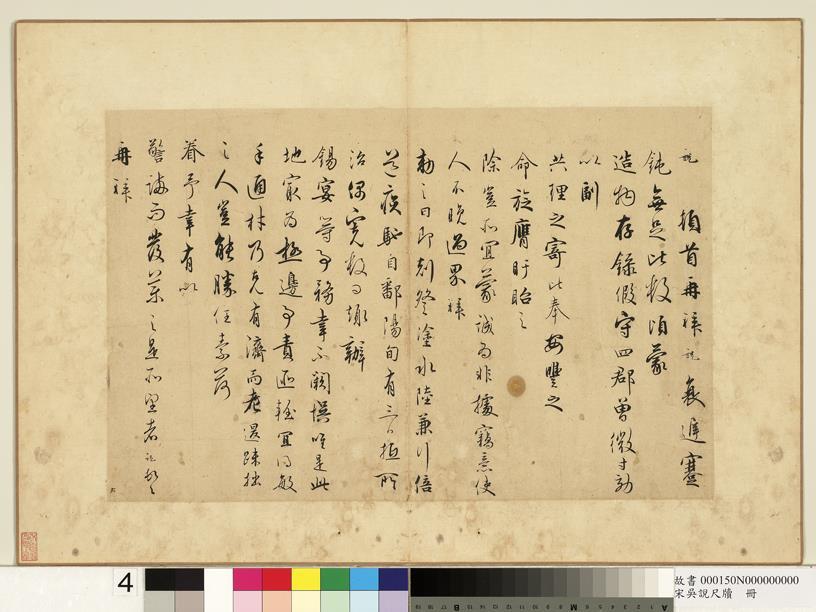 說頓首再拜說衰遲蹇
鈍無足比數頃蒙
造物存錄假守四郡曾微寸効
以副
共理之寄比奉安豐之
命旋膺盱眙之
除豈所宜蒙誠為非據竊意使
人不晚過界拜
勅之日即刻登塗水陸兼行倍
道疾馳自鄱陽旬有三日抵所
治偶完數日頗辦
錫宴等事務幸不闕誤唯是此
地最為極邊事責匪輕宜得敏
手通材乃克有濟而老退疎拙
之人豈能勝任素荷
眷予幸有以
警誨而發藥之是所望者說頓首
再拜
4
B M A
故書 000150N000000000
宋吳說尺牘 冊